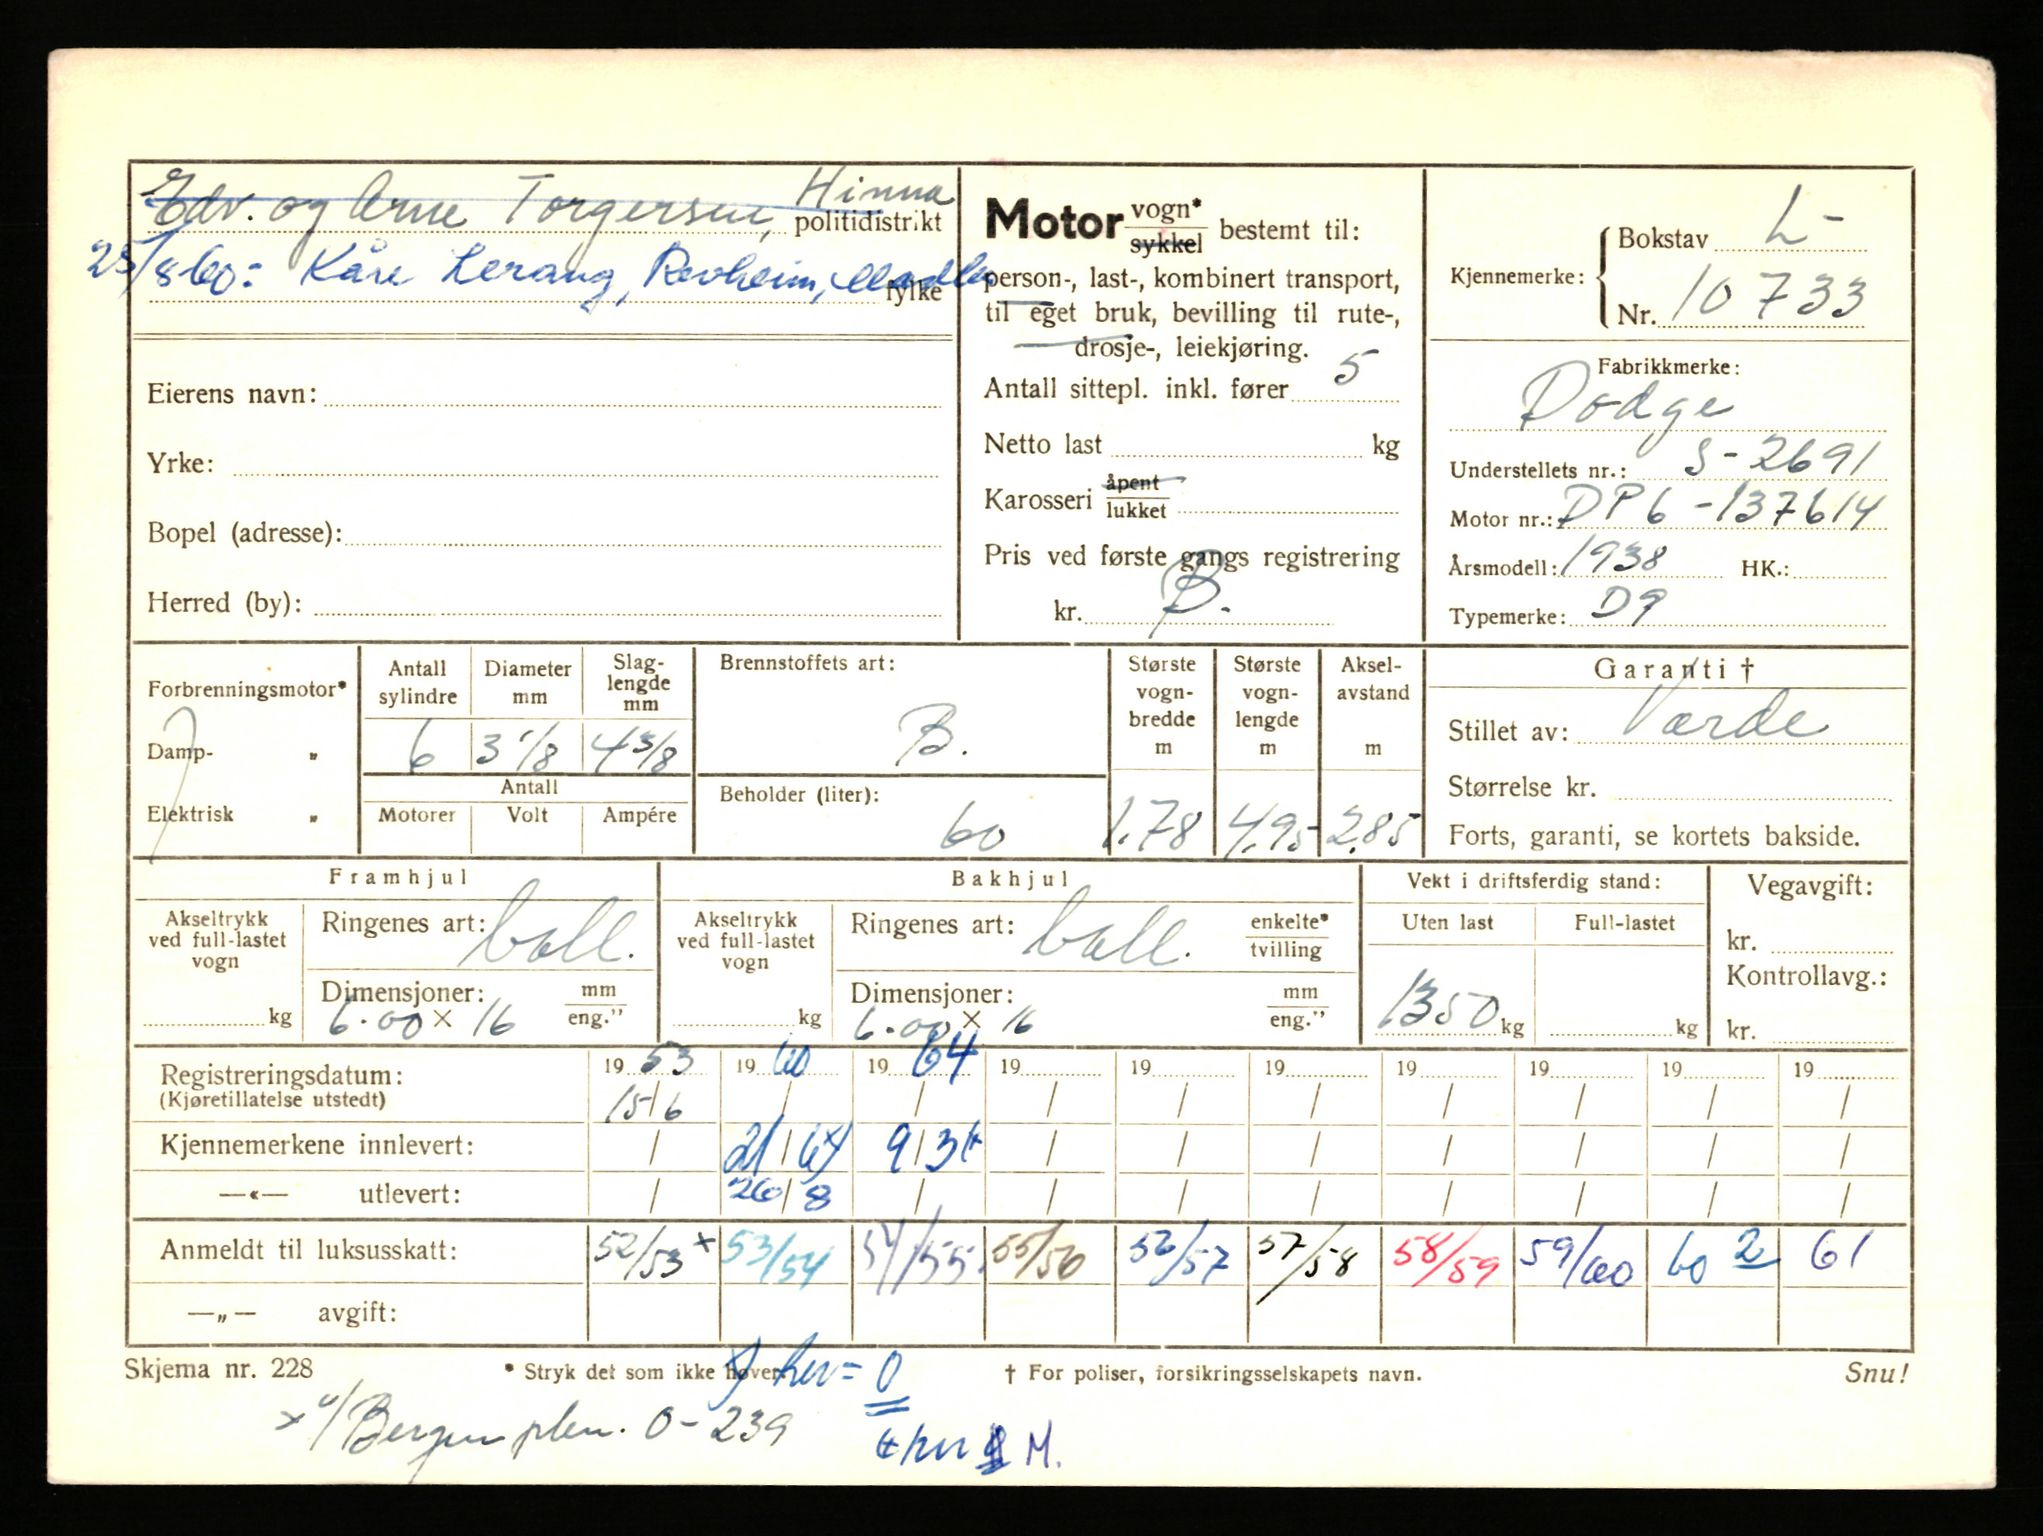 Edv. og Arne Torgersen, Hinna
politidistrikt
25/8 60: Kåre Lerang, Revheim, Madla
fylke
Eierens navn:
Yrke:
Bopel (adresse):
Herred (by):
Motor vogn* sykkel bestemt til:
person-, last-, kombinert transport,
til eget bruk, bevilling til rute-,
drosje-, leiekjøring.
Antall sittepl. inkl. fører 5
Netto last kg
Karosseri åpent lukket
Pris ved første gangs registrering
kr. B.
Kjennemerke: Bokstav L-
Nr. 10733
Fabrikkmerke:
Dodge
Understellets nr.: S-2691
Motor nr.: DP6-137614
Årsmodell: 1938 HK.:
Typemerke: D9
Forbrenningsmotor*
Damp- „
Elektrisk „
Antall sylindre Diameter mm Slag-lengde mm
6 3 1/8 4 3/8
Antall
Motorer Volt Ampére
Brennstoffets art:
B.
Beholder (liter):
60
Største vogn-bredde m Største vogn-lengde m Aksel-avstand m
1.78 4,95 2,85
Garanti †
Stillet av: Værde
Størrelse kr.
Forts, garanti, se kortets bakside.
Framhjul
Akseltrykk ved full-lastet vogn kg
Ringenes art: ball.
Dimensjoner: mm eng."
6.00 x 16
Bakhjul
Akseltrykk ved full-lastet vogn kg
Ringenes art: ball. enkelte* tvilling
Dimensjoner: mm eng."
6.00 x 16
Vekt i driftsferdig stand:
Uten last Full-lastet
1350 kg kg
Vegavgift:
kr.
Kontrollavg.:
kr.
Registreringsdatum: 19 53 19 60 19 64 19 19 19 19 19 19 19
(Kjøretillatelse utstedt) 15/6 / / / / / / / / /
Kjennemerkene innlevert: / 21/6 9/3 / / / / / / /
—«— utlevert: / 26/8 / / / / / / / /
Anmeldt til luksusskatt: 52/53 x 53/54 54/55 55/56 56/57 57/58 58/59 59/60 60 2 61
—„— avgift:
Skjema nr. 228 * Stryk det som ikke høver. † For poliser, forsikringsselskapets navn. Snu!
her = 0
x Bergen O-239
M.